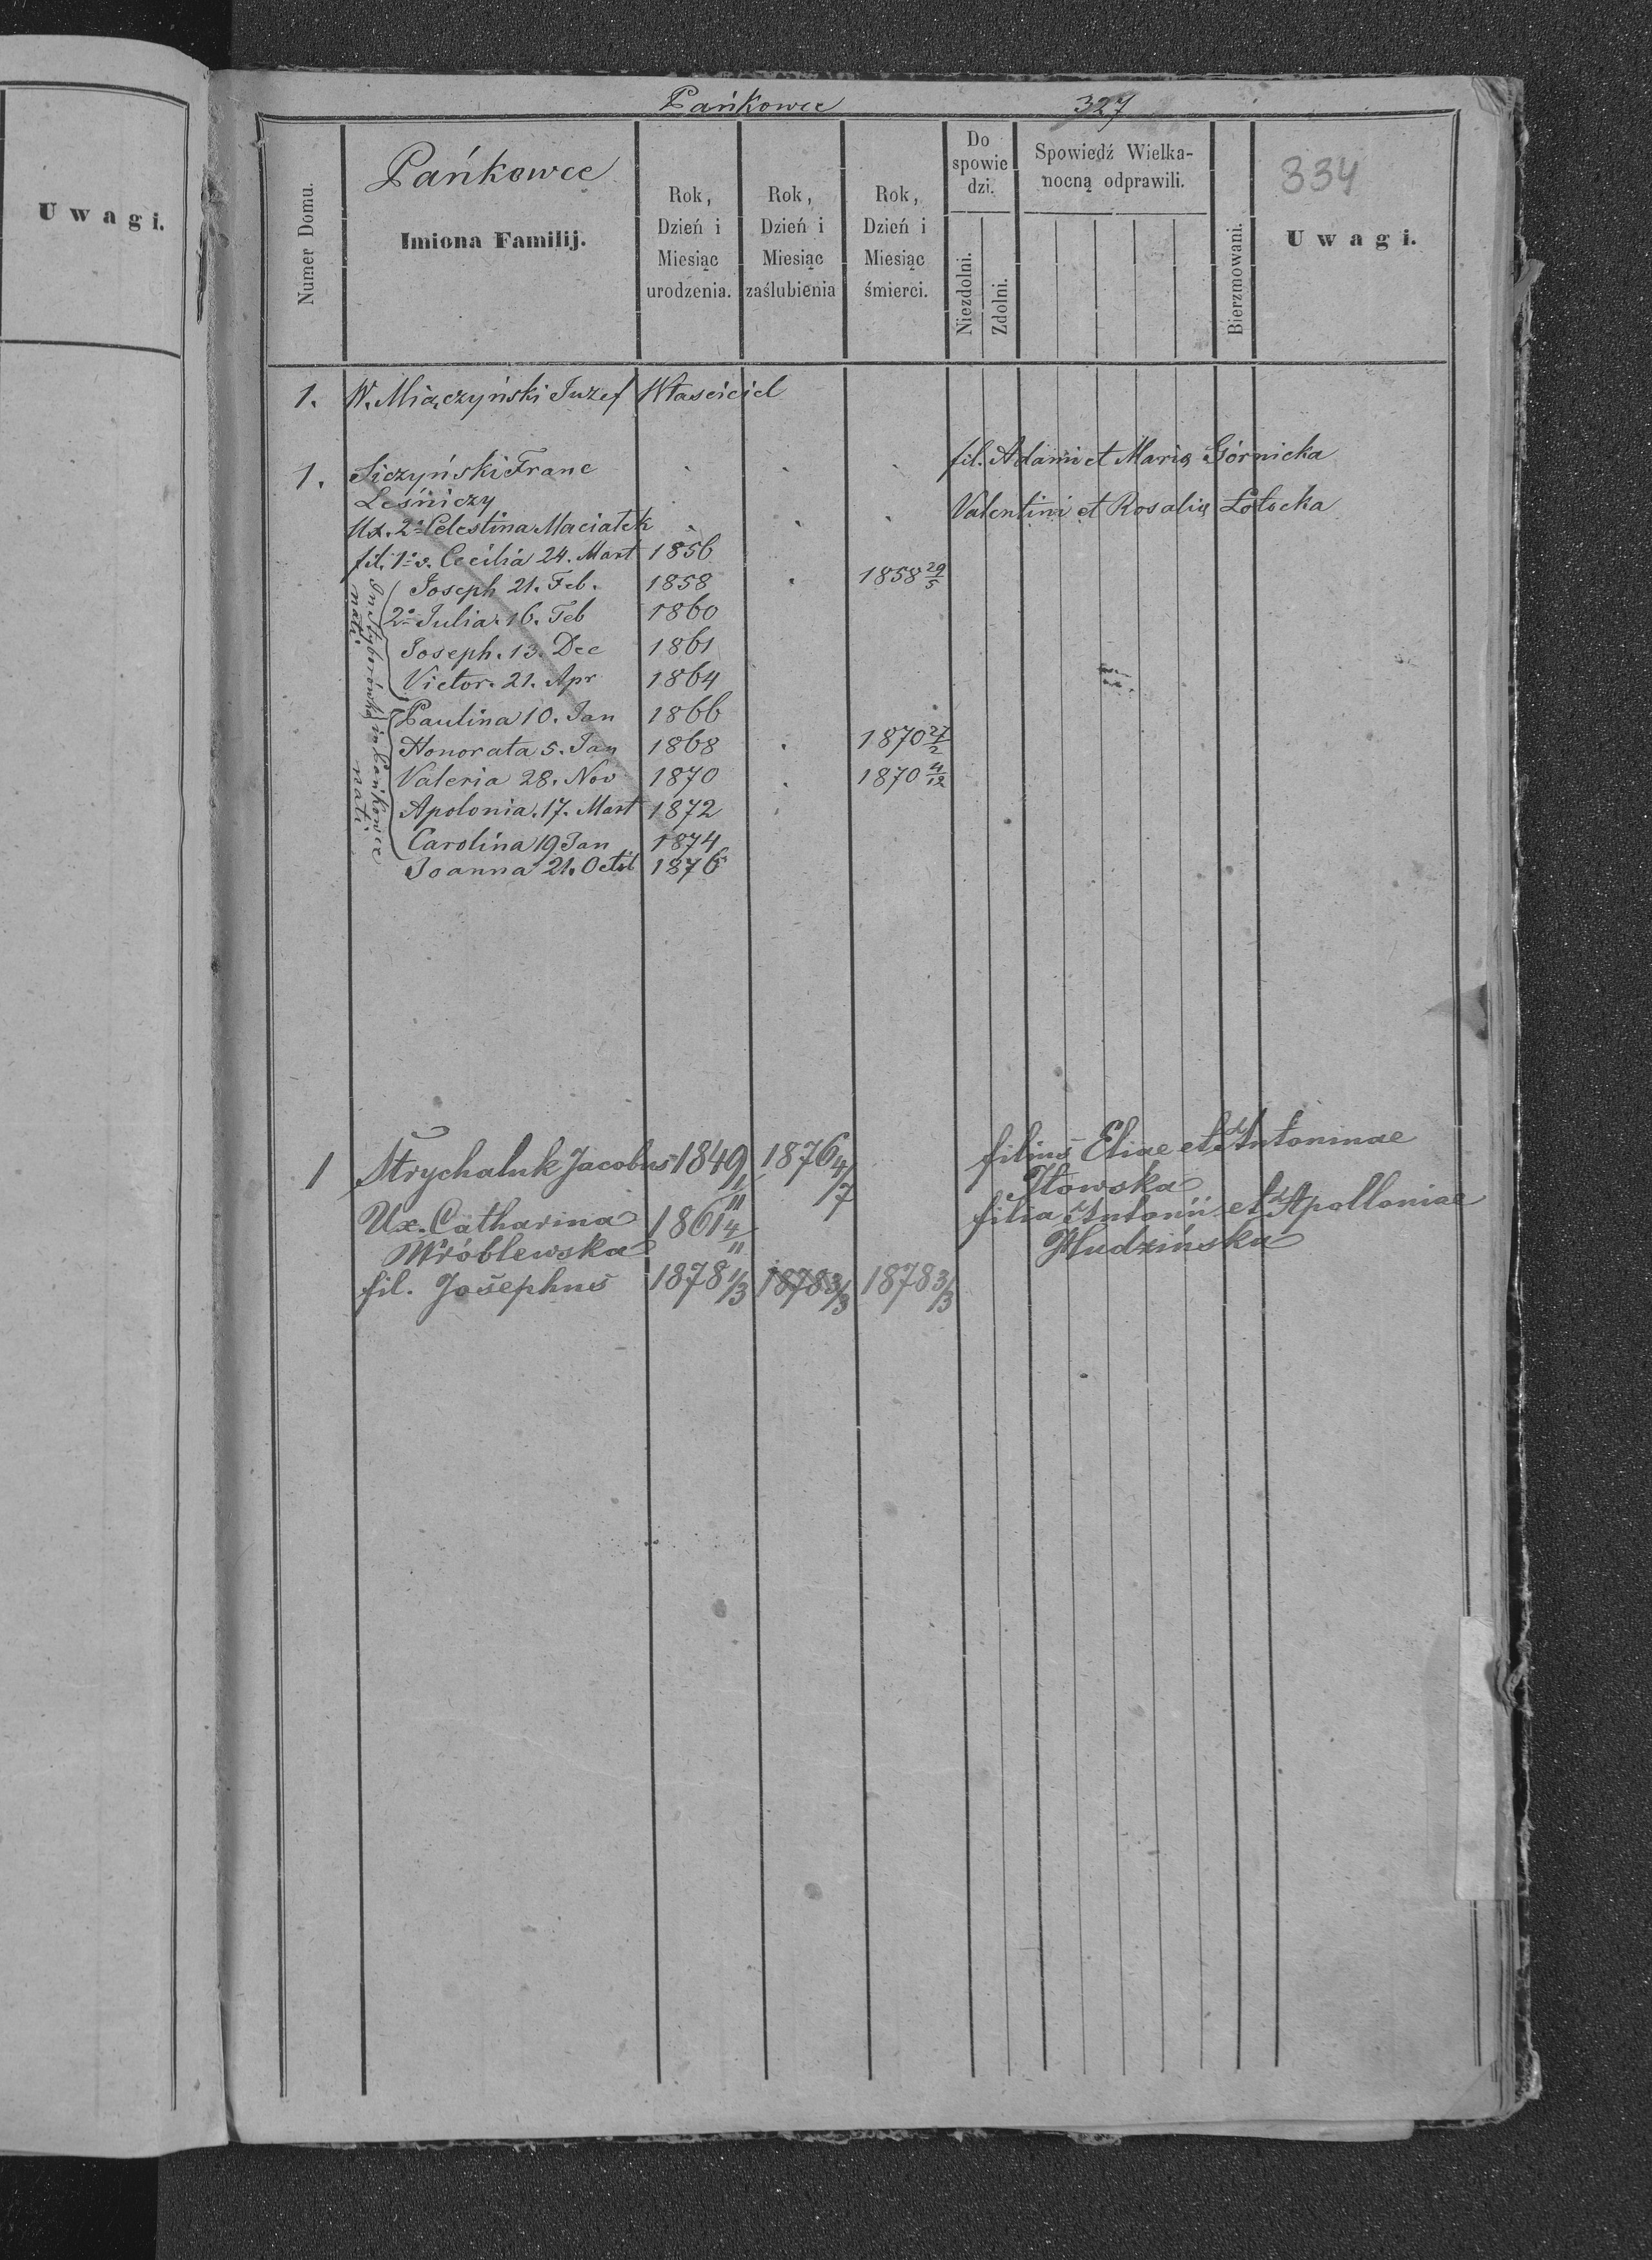 Uwagi.
Pańkowce 327
Numer Domu.
Pańkowce
Imiona Familij.
Rok, Dzień i Miesiąc urodzenia.
Rok, Dzień i Miesiąc zaślubienia
Rok, Dzień i Miesiąc śmierci.
Do spowiedzi.
Niezdolni.
Zdolni.
Spowiedź Wielkanocną odprawili.
Bierzmowani.
334
Uwagi.
1. W. Miączyński Juzef Właściciel
1. Siczyński Franc fil. Adami et Maria Górnicka
Leśniczy
Ux. 2º Celestina Maciałek Valentini et Rosalia Łotocka
fil. 1º v. Cecilia 24. Mart 1856
Joseph 21. Feb. 1858 1858 29/5
2º Julia. 16. Feb 1860
Joseph. 13. Dec 1861
Victor. 21. Apr 1864
nati
Paulina 10. Jan 1866
Honorata 5. Jan 1868 1870 27/2
Valeria 28. Nov 1870 1870 4/12
Apolonia. 17. Mart 1872
Carolina 19 Jan 1874
Joanna 21. Octob 1876
in Pańkowce nati
1 Strychaluk Jacobus 1849 1876 4/7 filius Eliae et Antoninae
Ux. Catharina 1861 4/11 filia Antonii et Apolloniae
Wróblewska Hudzińska
fil. Josephus 1878 1/3 1878 3/3 1878 3/3